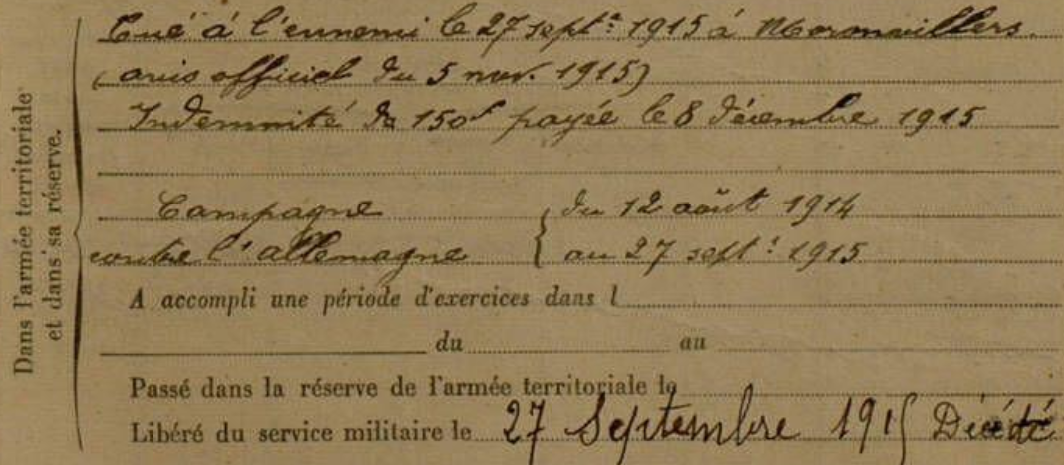 Dans l'armée territoriale
et dans sa réserve.
Tué à l'ennemi le 27 sept.e 1915 à Moronvillers.
(avis officiel du 5 nov. 1915)
Indemnité de 150f payée le 8 décembre 1915
Campagne { du 12 août 1914
contre l'allemagne { au 27 sept.e 1915
A accompli une période d'exercices dans l
du au
Passé dans la réserve de l'armée territoriale le
Libéré du service militaire le 27 Septembre 1915 Décédé